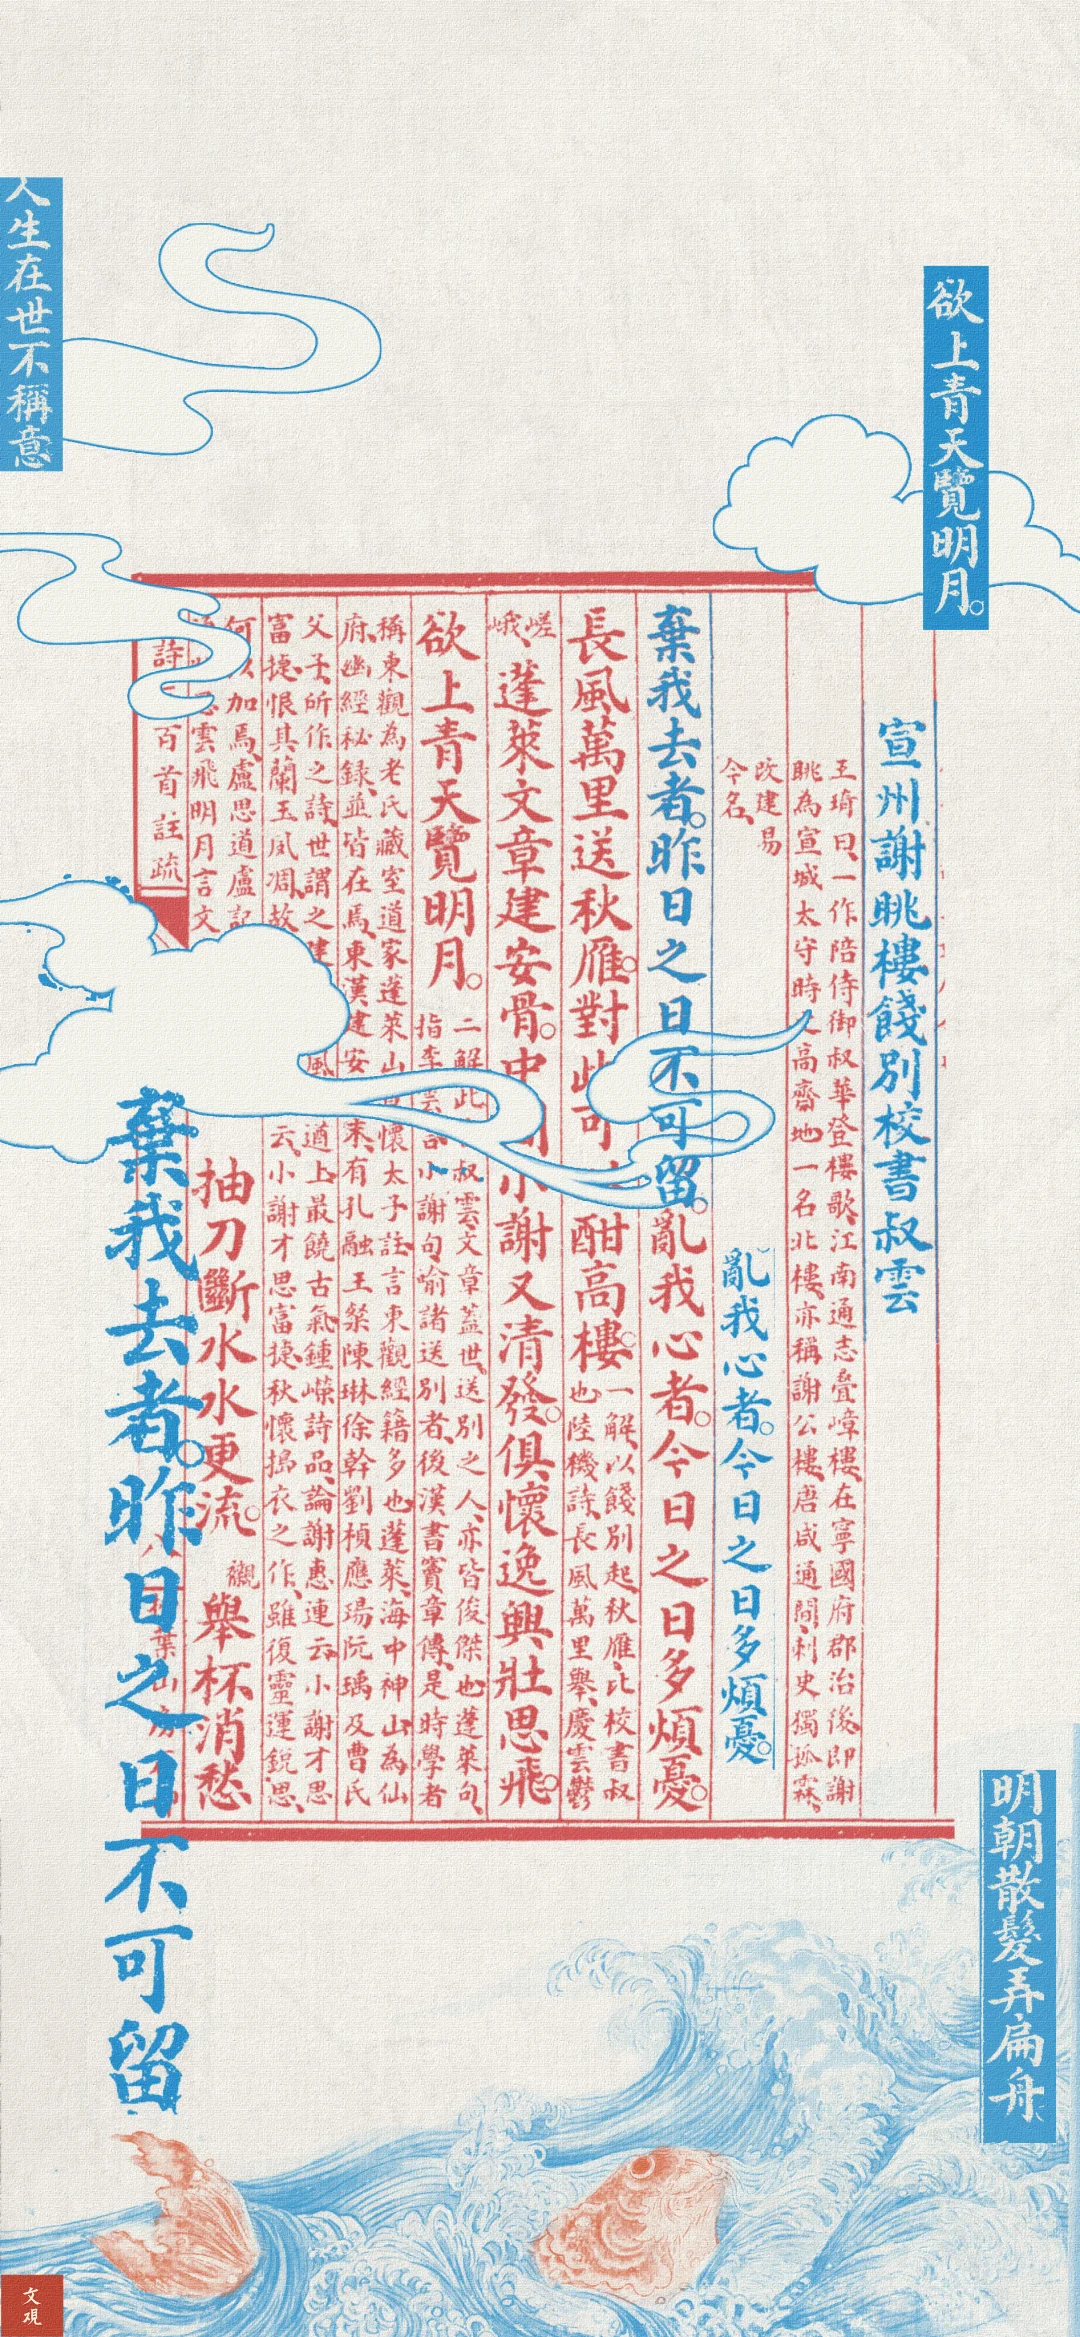 欲上青天覽明月。
宣州謝朓樓餞別校書叔雲
王琦曰、一作陪侍御叔華登樓歌、江南通志、疊嶂樓、在寧國府郡治後、即謝
朓為宣城太守時之高齋地、一名北樓、亦稱謝公樓、唐咸通間、刺史獨孤霖、
改建易
今名、
亂我心者。今日之日多煩憂。
棄我去者。昨日之日不可留。亂我心者。今日之日多煩憂。
長風萬里送秋雁。對此可酣高樓。
一解、以餞別起、秋雁、比校書叔
也、陸機詩、長風萬里舉、慶雲鬱
嵯
峨、
蓬萊文章建安骨。中小謝又清發。俱懷逸興壯思飛。
欲上青天覽明月。
二解、此叔雲、文章蓋世、送別之人、亦皆俊傑也、蓬萊句、
指李雲言、小謝句、喻諸送別者、後漢書竇章傳、是時學者
稱東觀為老氏藏室、道家蓬萊山、懷太子註、言東觀經籍多也、蓬萊、海中神山、為仙
府、幽經秘錄、並皆在焉、東漢建安末、有孔融王粲陳琳徐幹劉楨應瑒阮瑀及曹氏
父子、所作之詩、世謂之建風遒上、最饒古氣、鍾嶸詩品、論謝惠連云、小謝才思
富捷、恨其蘭玉夙凋、故云、小謝才思富捷、秋懷擣衣之作、雖復靈運銳思、
何以加焉、盧思道盧記
雲飛明月言文
抽刀斷水水更流。
觀
舉杯消愁
詩百首註疏
棄我去者。昨日之日不可留
人生在世不稱意
明朝散髮弄扁舟、
文观